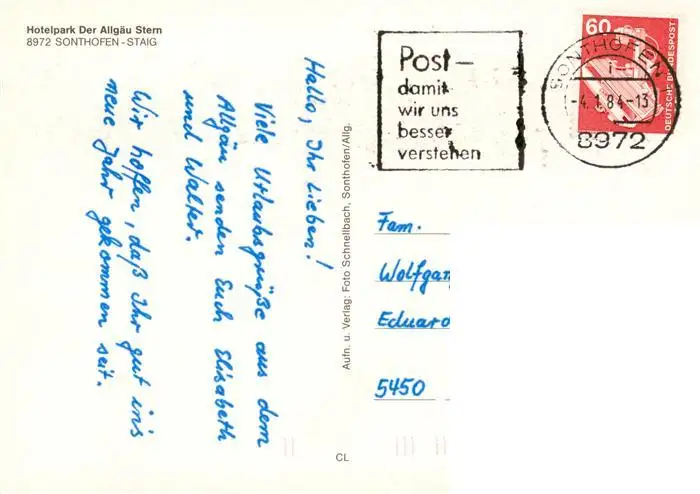 Hotelpark Der Allgäu Stern
8972 SONTHOFEN - STAIG
Hallo, Ihr Lieben!
Viele Urlaubsgrüße aus dem
Allgäu senden Euch Elisabeth
und Walter.
Wir hoffen, daß Ihr gut ins
neue Jahr gekommen seit.
Aufn. u. Verlag: Foto Schnellbach, Sonthofen/Allg.
CL
Post–
damit
wir uns
besser
verstehen
SONTHOFEN
1
-4.1.84-13
8972
60
DEUTSCHE BUNDESPOST
Fam.
Wolfgan
Eduard
5450